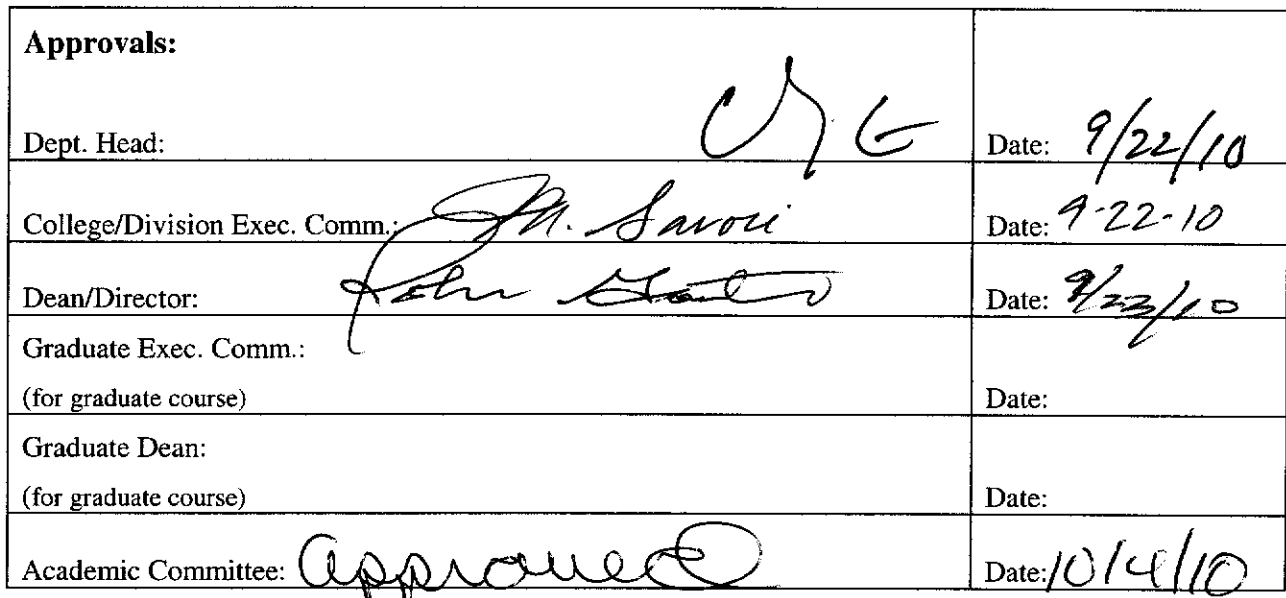 Approvals:
Dept. Head: Date: 9/22/10
College/Division Exec. Comm.: M. Savoie Date: 9-22-10
Dean/Director: Date: 9/23/10
Graduate Exec. Comm.:
(for graduate course) Date:
Graduate Dean:
(for graduate course) Date:
Academic Committee: Approved Date: 10/4/10